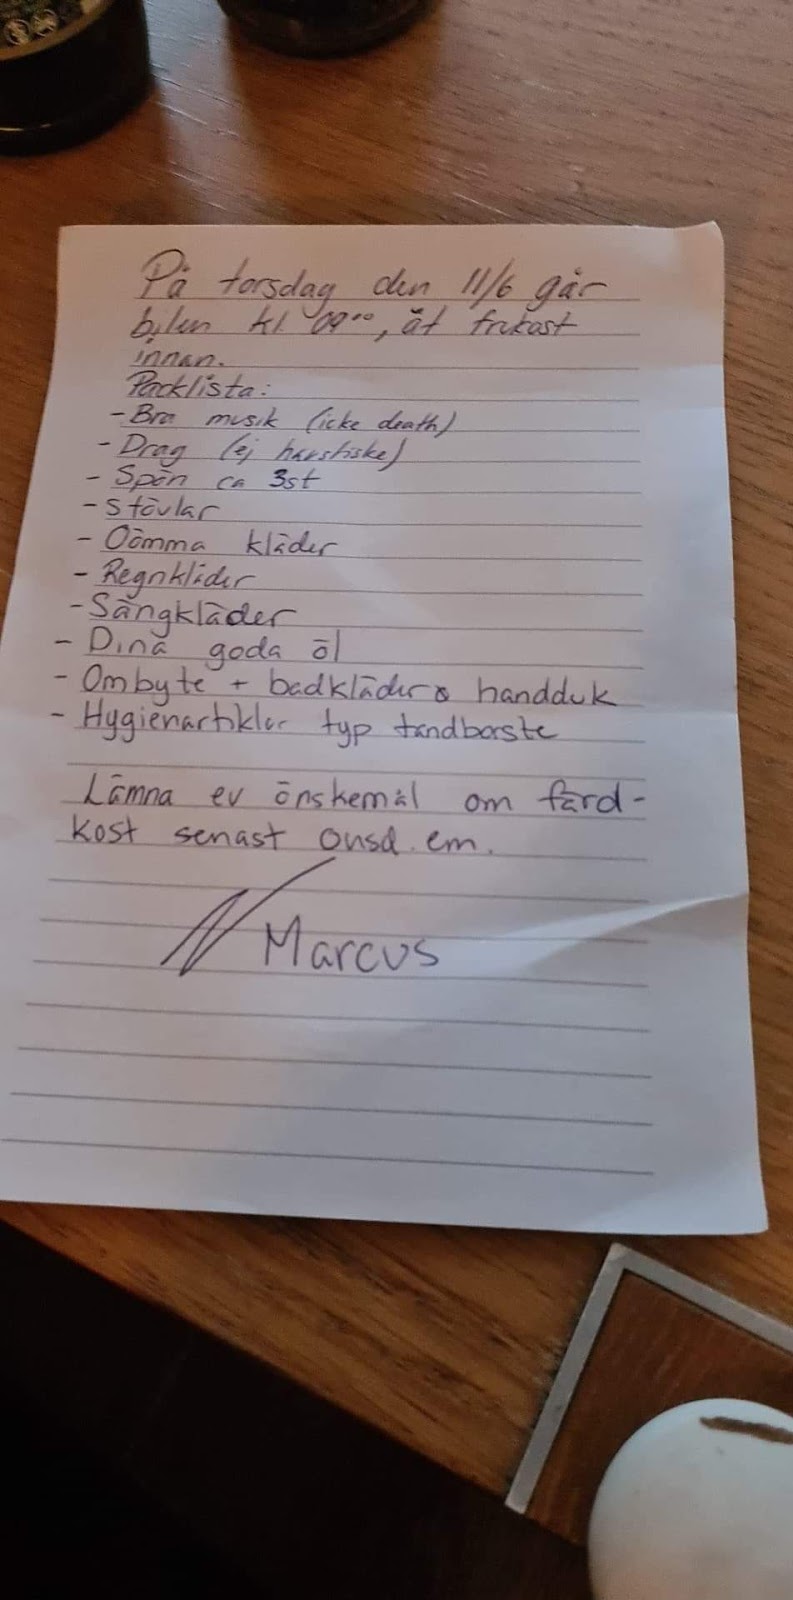 På torsdag den 11/6 går
bilen kl 09⁰⁰, ät frukost
innan.
Packlista:
- Bra musik (icke death)
- Drag (ej havsfiske)
- Spön ca 3st
- Stövlar
- Oömma kläder
- Regnkläder
- Sängkläder
- Dina goda öl
- Ombyte + badkläder & handduk
- Hygienartiklar typ tandborste
Lämna ev önskemål om färd-
kost senast onsd. em.
Marcus